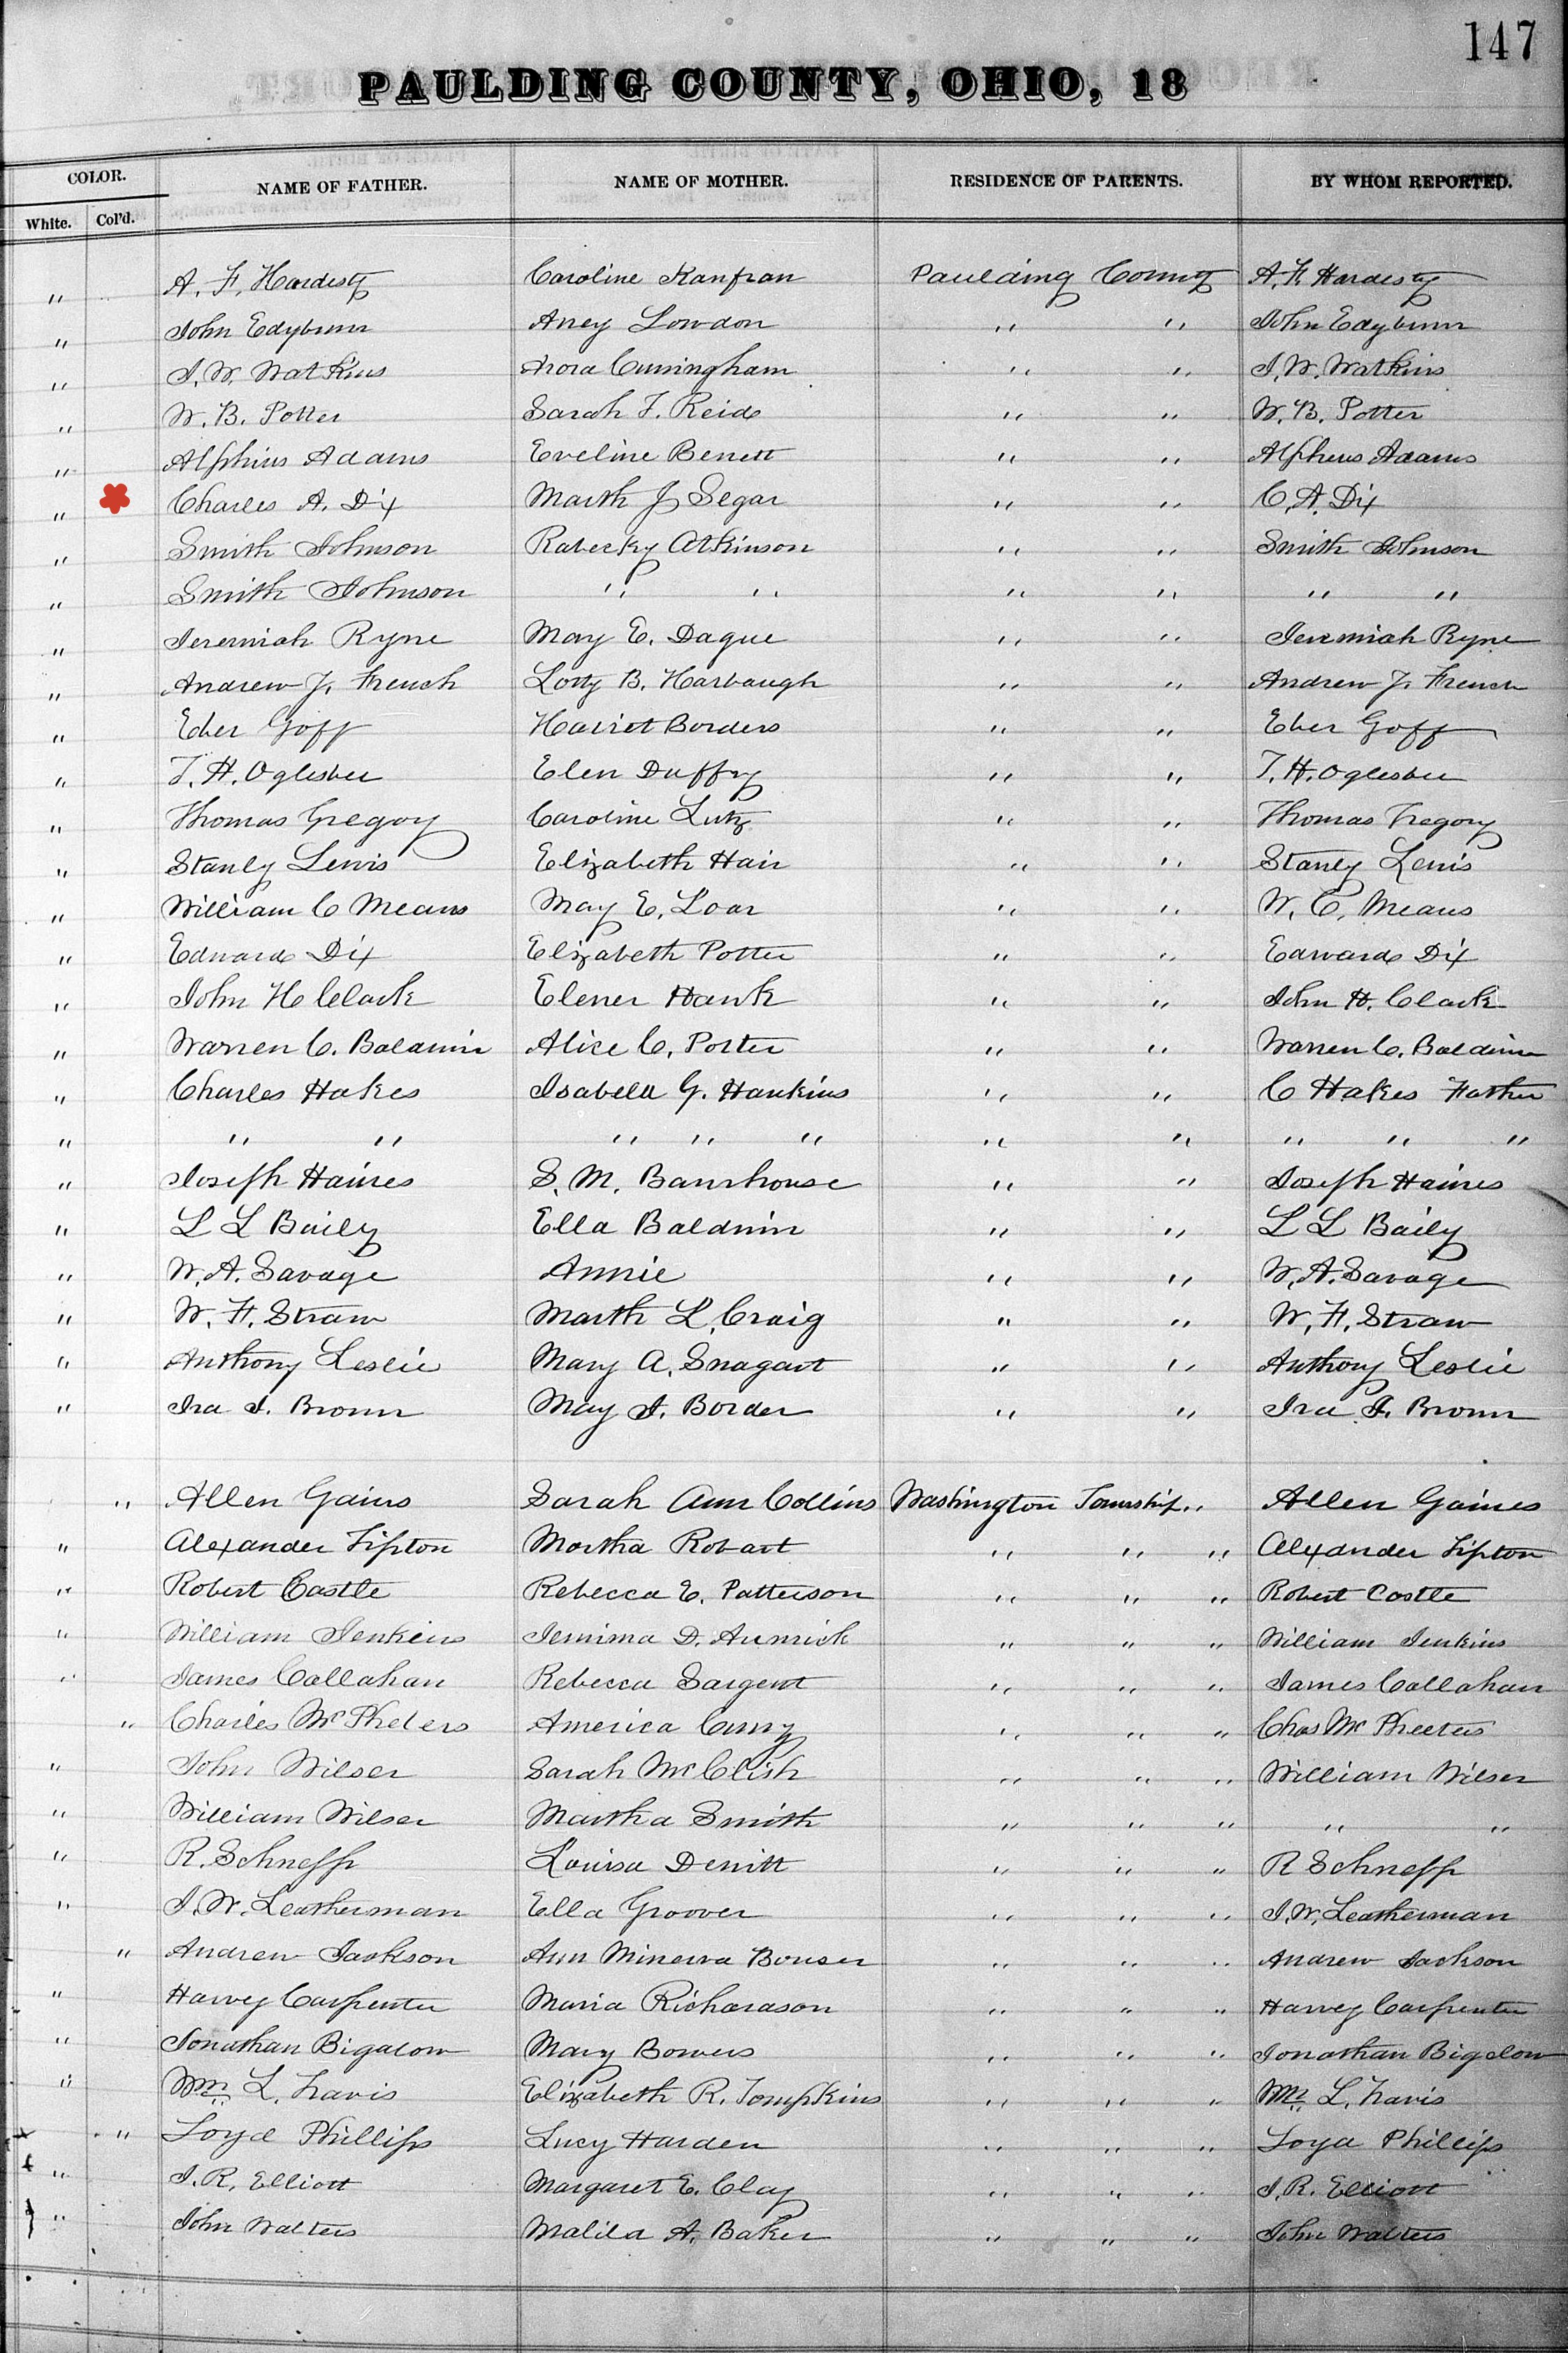 147
PAULDING COUNTY, OHIO, 18
COLOR. NAME OF FATHER. NAME OF MOTHER. RESIDENCE OF PARENTS. BY WHOM REPORTED.
White. Col'd.
" A. F. Hardesty Caroline Kanfran Paulding County A. F. Hardesty
" John Edyburn Aney Lowdon " " John Edyburn
" J. W. Watkins Nora Cuningham " " J. W. Watkins
" W. B. Potter Sarah F. Reid " " W. B. Potter
" Alphius Adams Eveline Benett " " Alpheus Adams
" Charles A. Dix Marth J Segar " " C. A. Dix
" Smith Johnson Rabecky Atkinson " " Smith Johnson
" Smith Johnson " " " " " "
" Jeremiah Ryne May E. Dague " " Jeremiah Ryne
" Andrew J. French Lotty B. Harbaugh " " Andrew J. French
" Eber Goff Harriet Borders " " Eber Goff
" T. H. Oglesbee Elen Duffy " " T. H. Oglesbee
" Thomas Gregory Caroline Lutz " " Thomas Gregory
" Stanly Lewis Elizabeth Hair " " Stanly Lewis
" William C Means May E. Loar " " W. C. Means
" Edward Dix Elizabeth Potter " " Edward Dix
" John H Clark Elener Hawk " " John H. Clark
" Warren C. Baldwin Alice C. Porter " " Warren C. Baldwin
" Charles Hakes Isabela G. Hankins " " C Hakes Father
" " " " " " " " " " "
" Joseph Haines S. M. Barnhouse " " Joseph Haines
" L L Baily Ella Baldwin " " L L Baily
" W. A. Savage Annie " " W. A. Savage
" W. F. Straw Marth L. Craig " " W. F. Straw
" Anthony Leslie Mary A. Snagart " " Anthony Leslie
" Ira J. Brown May J. Border " " Ira J. Brown
" Allen Gains Sarah Ann Collins Washington Township " Allen Gaines
" Alexander Tipton Martha Robart " " " Alexander Tipton
" Robert Castle Rebecca E. Patterson " " " Robert Castle
" William Jenkins Jemima D. Aumick " " " William Jenkins
" James Callahan Rebecca Sargent " " " James Callahan
" Charles McPheters America Curry " " " Chas McPheeters
" John Wilser Sarah McClish " " " William Wilser
" William Wilser Martha Smith " " " " "
" R. Schnepp Louisa Dewitt " " " R Schnepp
" J. W. Leatherman Ella Groover " " " J. W. Leatherman
" Andrew Jackson Ann Minerva Bouser " " " Andrew Jackson
" Harvey Carpenter Maria Richardson " " " Harvey Carpenter
" Jonathan Bigalow Mary Bowers " " " Jonathan Bigelow
" Wm L. Travis Elizabeth R. Tompkins " " " Wm L. Travis
" Loyd Phillips Lucy Harden " " " Loyd Phillips
" J. R. Elliott Margaret E. Clay " " " J. R. Elliott
" John Walters Malila A. Baker " " " John Walters